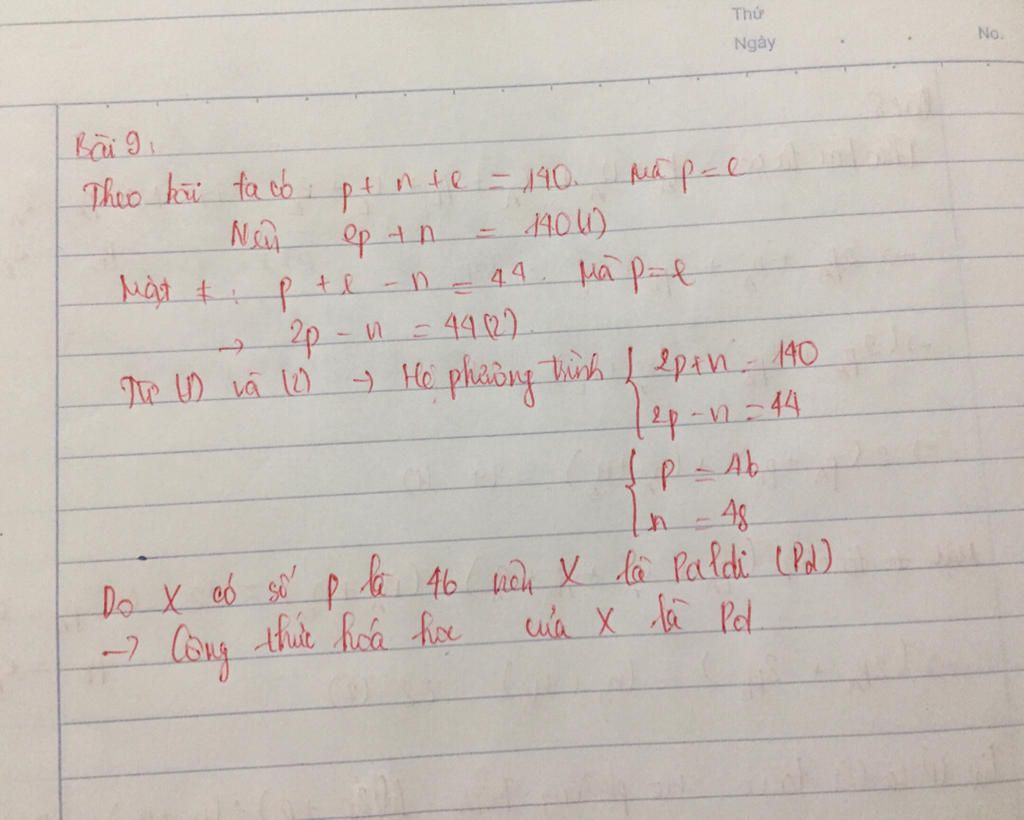 Thứ
Ngày
No.
Bài 9:
Theo bài ta có: p + n + e = 140. Mà p = e
Nên 2p + n = 140 (1)
Mặt ≠: p + e - n = 44. Mà p = e
→ 2p - n = 44 (2).
Từ (1) và (2) → Hệ phương trình { 2p + n = 140
2p - n = 44
{ p = 46
n = 48
Do X có số p là 46 nên X là Paladi (Pd)
→ Công thức hoá học của X là Pd